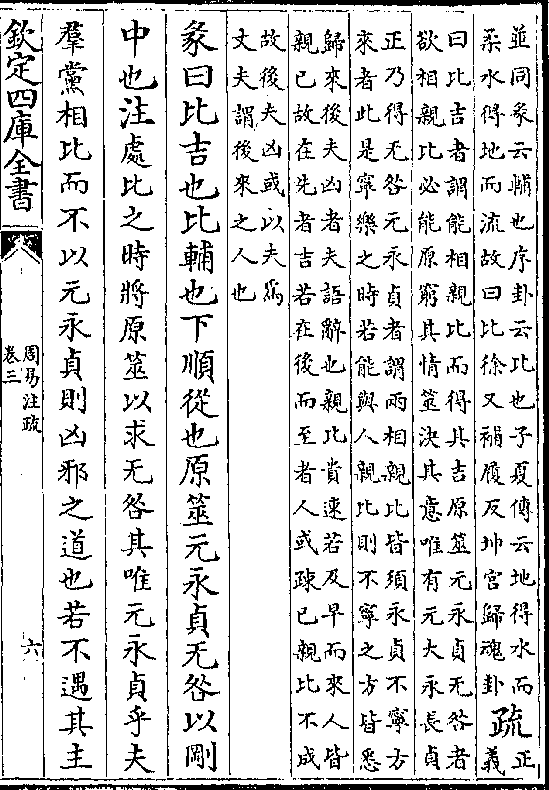 並同彖云輔也序卦云比也子夏傳云地得水而
柔水得地而流故曰比徐又補履反坤宮歸魂卦
疏
正
義
曰比吉者謂能相親比而得其吉原筮元永貞无咎者
欲相親比必能原窮其情筮決其意唯有元大永長貞
正乃得无咎元永貞者謂兩相親比皆須永貞不寧方
來者此是寧樂之時若能與人親比則不寧之方皆悉
歸來後夫凶者夫語辭也親比貴速若及早而來人皆
親已故在先者吉若在後而至者人或疎已親比不成
故後夫凶或以夫為
丈夫謂後來之人也
彖曰比吉也比輔也下順從也原筮元永貞无咎以剛
中也注處比之時將原筮以求无咎其唯元永貞乎夫
羣黨相比而不以元永貞則凶邪之道也若不遇其主
欽定四庫全書
周易注疏
卷三
六